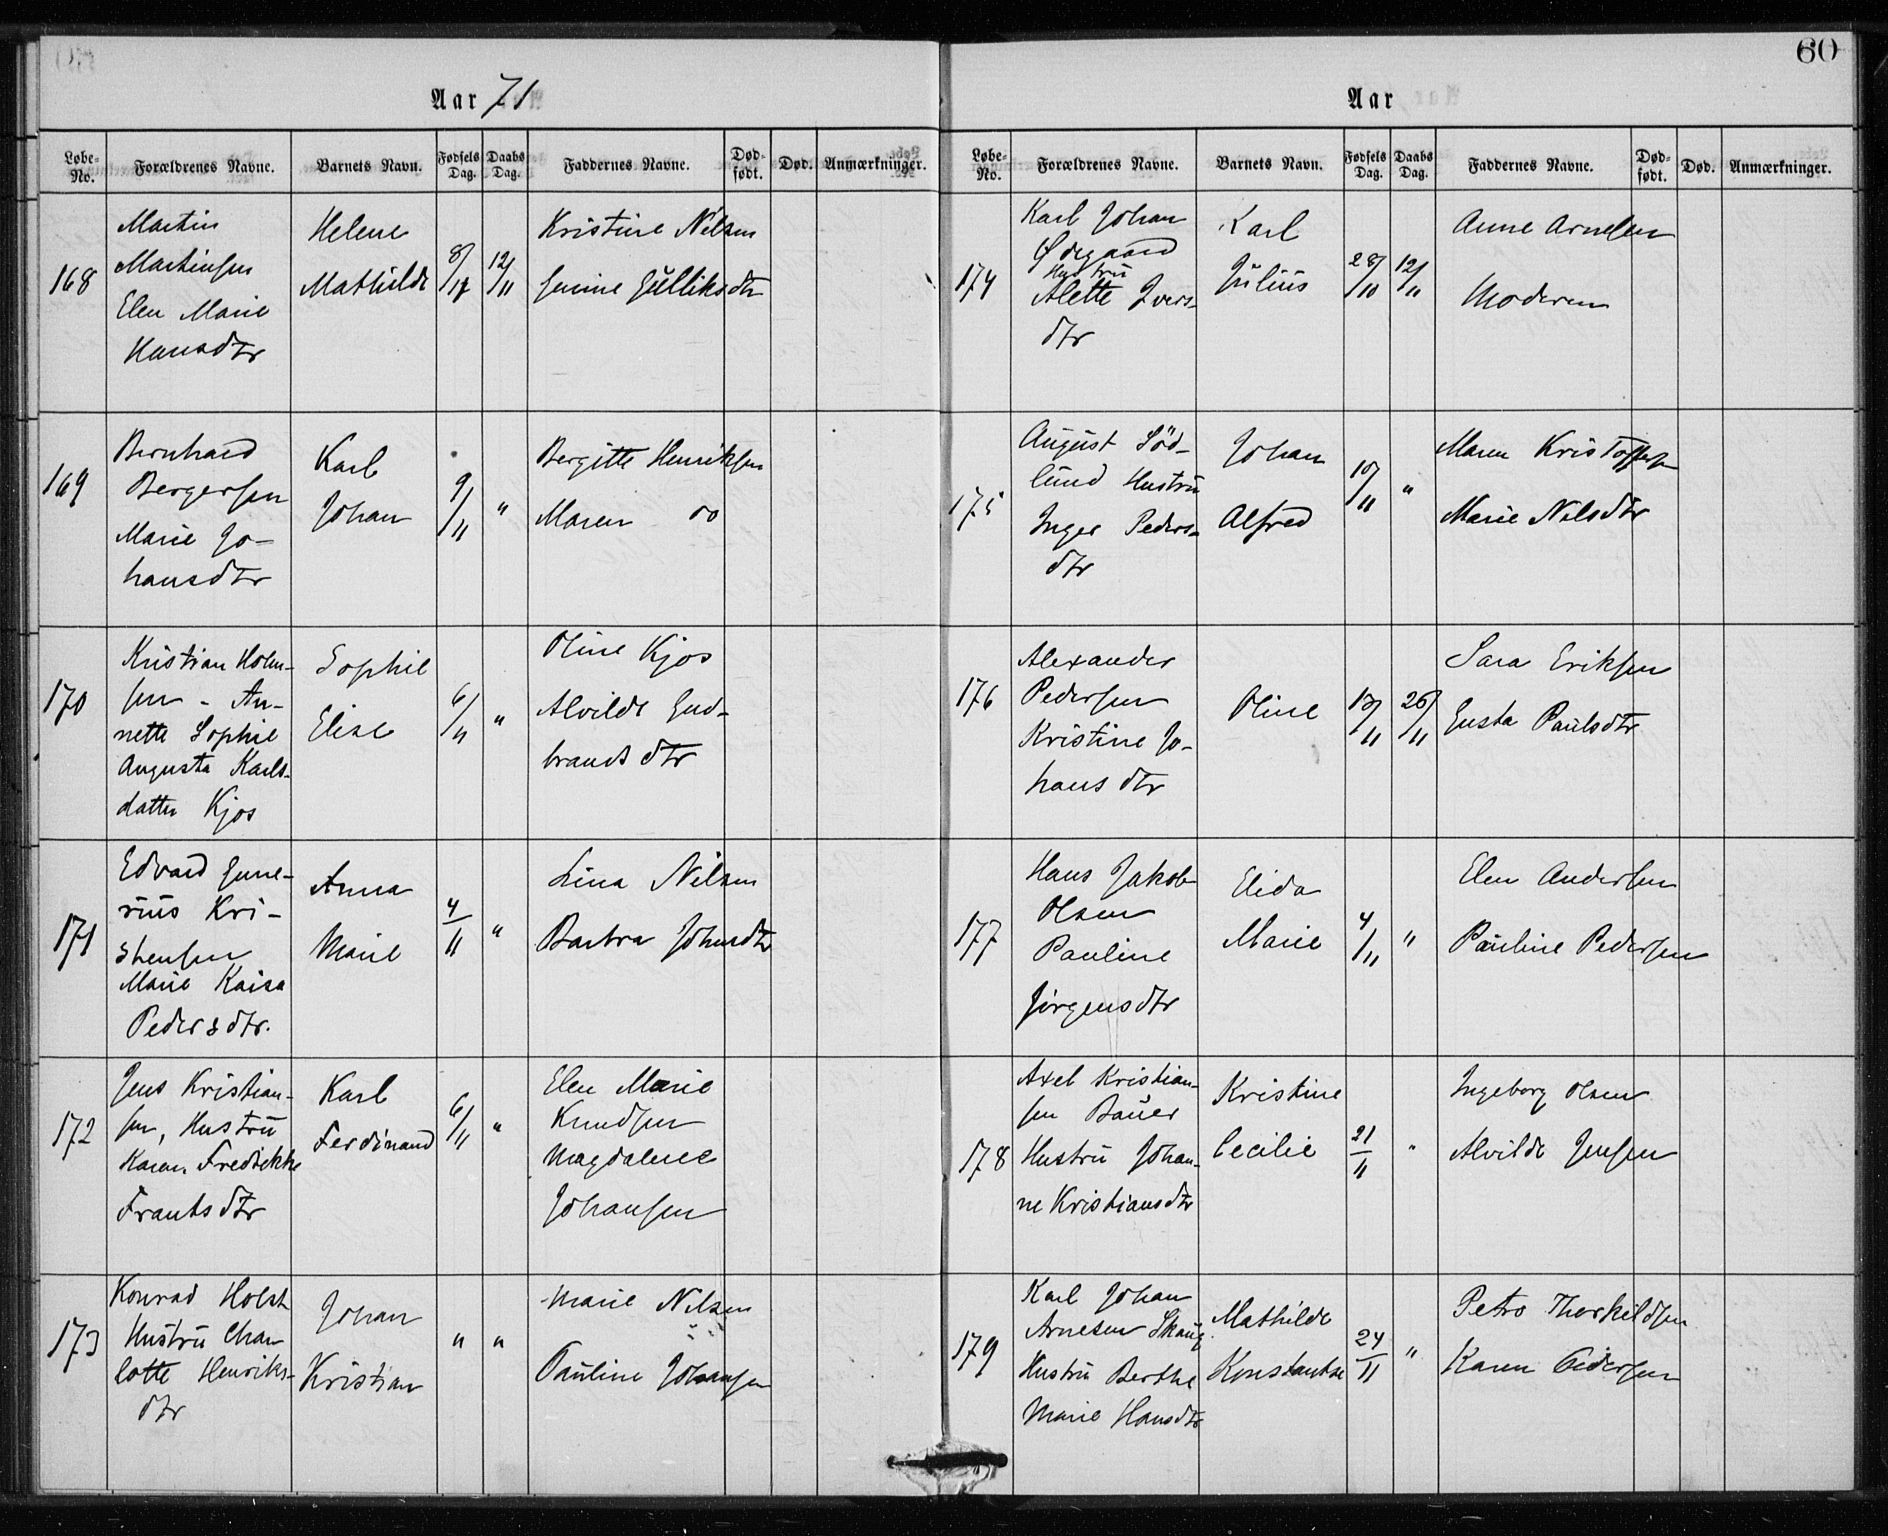 Aar 71
Løbe-No. Forældrenes Navne. Barnets Navn. Fødsels Dag. Daabs Dag. Faddernes Navne. Død-født. Død. Anmærkninger.
168
Martin
Martinsen
Elen Marie
Hansdtr
Helene
Mathilde
8/
12/11
Kristine Nilsen
Gulliksdtr
169
Bernhard
Bergersen
Marie Jo-
hansdtr
Karl
Johan
9/11
"
Bergitte Henriksen
Maren do
170
Kristian Holm-
sen - An-
nette Sophie
Augusta Karls-
datter Kjos
Sophie
Elise
6/11
"
Oline Kjos
Alvilde Gud-
brandsdtr
171
Edvard Gune-
rius Kri-
stensen
Marie Kaisa
Pedersdtr.
Anna
Marie
4/11
"
Lina Nilsen
Barbra Johnsdtr
172
Jens Kristian-
sen, Hustru
Karen Fredrikke
Frantsdtr
Karl
Ferdinand
6/11
"
Elen Marie
Knudsen
Magdalene
Johansen
173
Konrad Holst
Hustru Char
lotte Henriks-
dtr
Johan
Kristian
"
"
Marie Nilsen
Pauline Johansen
60
Aar
Løbe-No. Forældrenes Navne. Barnets Navn. Fødsels Dag. Daabs Dag. Faddernes Navne. Død-født. Død. Anmærkninger.
174
Karl Johan
Ødegaard
Hustru
Alette Ivers-
dtr
Karl
Julius
28/10
12/11
Anne Arnesen
Moderen
175
August Söd-
lund Hustru
Inger Peders-
dtr
Johan
Alfred
10/11
"
Maren Kristoffersen
Marie Nilsdtr
176
Alexander
Pedersen
Kristine Jo-
hansdtr
Oline
13/11
26/11
Sara Eriksen
Gusta Paulsdtr
177
Hans Jakob
Olsen
Pauline
Jörgensdtr
Elida
Marie
4/11
"
Elen Andersen
Pauline Pedersen
178
Axel Kristian-
sen Bauer
Hustru Johan-
ne Kristiansdtr
Kristine
Cecilie
21/11
"
Ingeborg Olsen
Alvilde Jensen
179
Karl Johan
Arnesen Skaug
Hustru Berthe
Marie Hansdtr
Mathilde
Konstantse
24/11
"
Petra Thorkildsen
Karen Pedersen